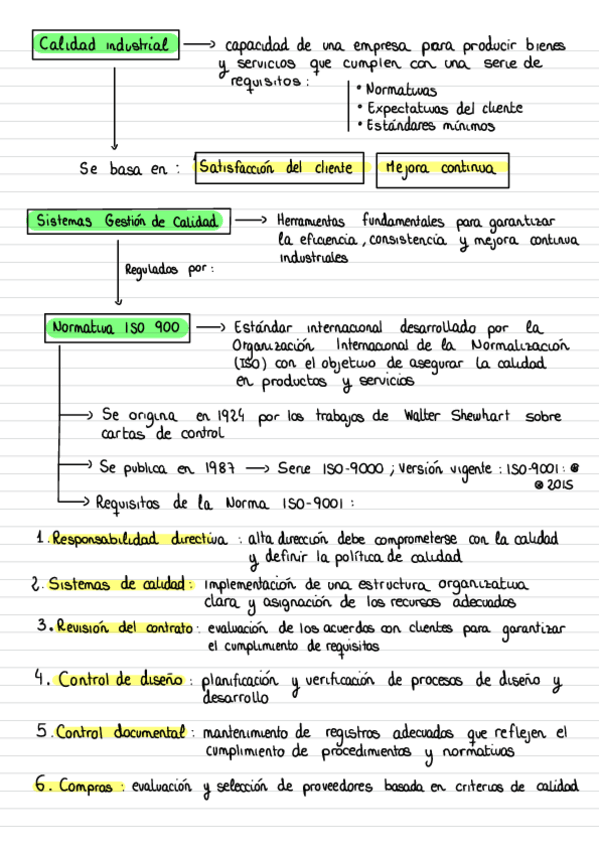 Calidad industrial → capacidad de una empresa para producir bienes
y servicios que cumplen con una serie de
requisitos:
• Normativas
• Expectativas del cliente
• Estándares mínimos
Se basa en: Satisfacción del cliente Mejora continua
Sistemas Gestión de Calidad → Herramientas fundamentales para garantizar
la eficiencia, consistencia y mejora continua
industriales
Regulados por:
Normativa ISO 900 → Estándar internacional desarrollado por la
Organización Internacional de la Normalización
(ISO) con el objetivo de asegurar la calidad
en productos y servicios
→ Se origina en 1924 por los trabajos de Walter Shewhart sobre
cartas de control
→ Se publica en 1987 → Serie ISO-9000; Versión vigente: ISO-9001:
2015
→ Requisitos de la Norma ISO-9001:
1. Responsabilidad directiva: alta dirección debe comprometerse con la calidad
y definir la política de calidad
2. Sistemas de calidad: implementación de una estructura organizativa
clara y asignación de los recursos adecuados
3. Revisión del contrato: evaluación de los acuerdos con clientes para garantizar
el cumplimiento de requisitos
4. Control de diseño: planificación y verificación de procesos de diseño y
desarrollo
5. Control documental: mantenimiento de registros adecuados que reflejen el
cumplimiento de procedimientos y normativas
6. Compras: evaluación y selección de proveedores basada en criterios de calidad